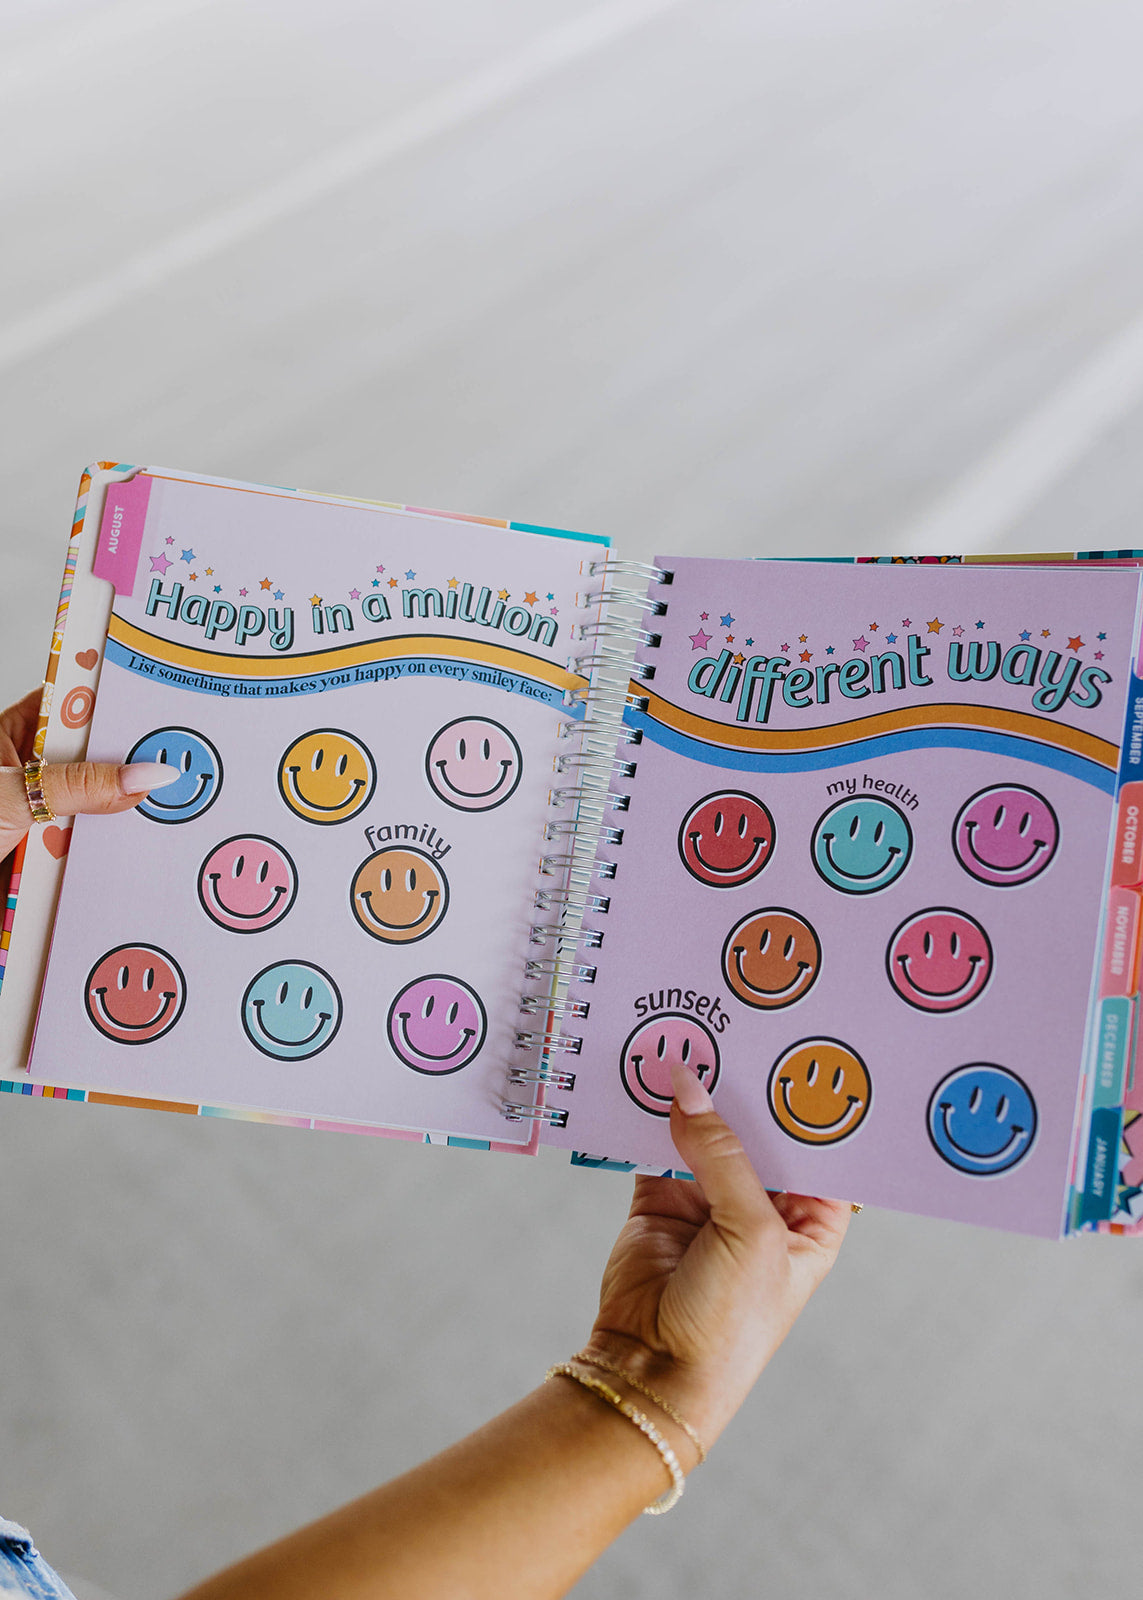 AUGUST
Happy in a million
List something that makes you happy on every smiley face:
family
different ways
my health
sunsets
SEPTEMBER
OCTOBER
NOVEMBER
DECEMBER
JANUARY